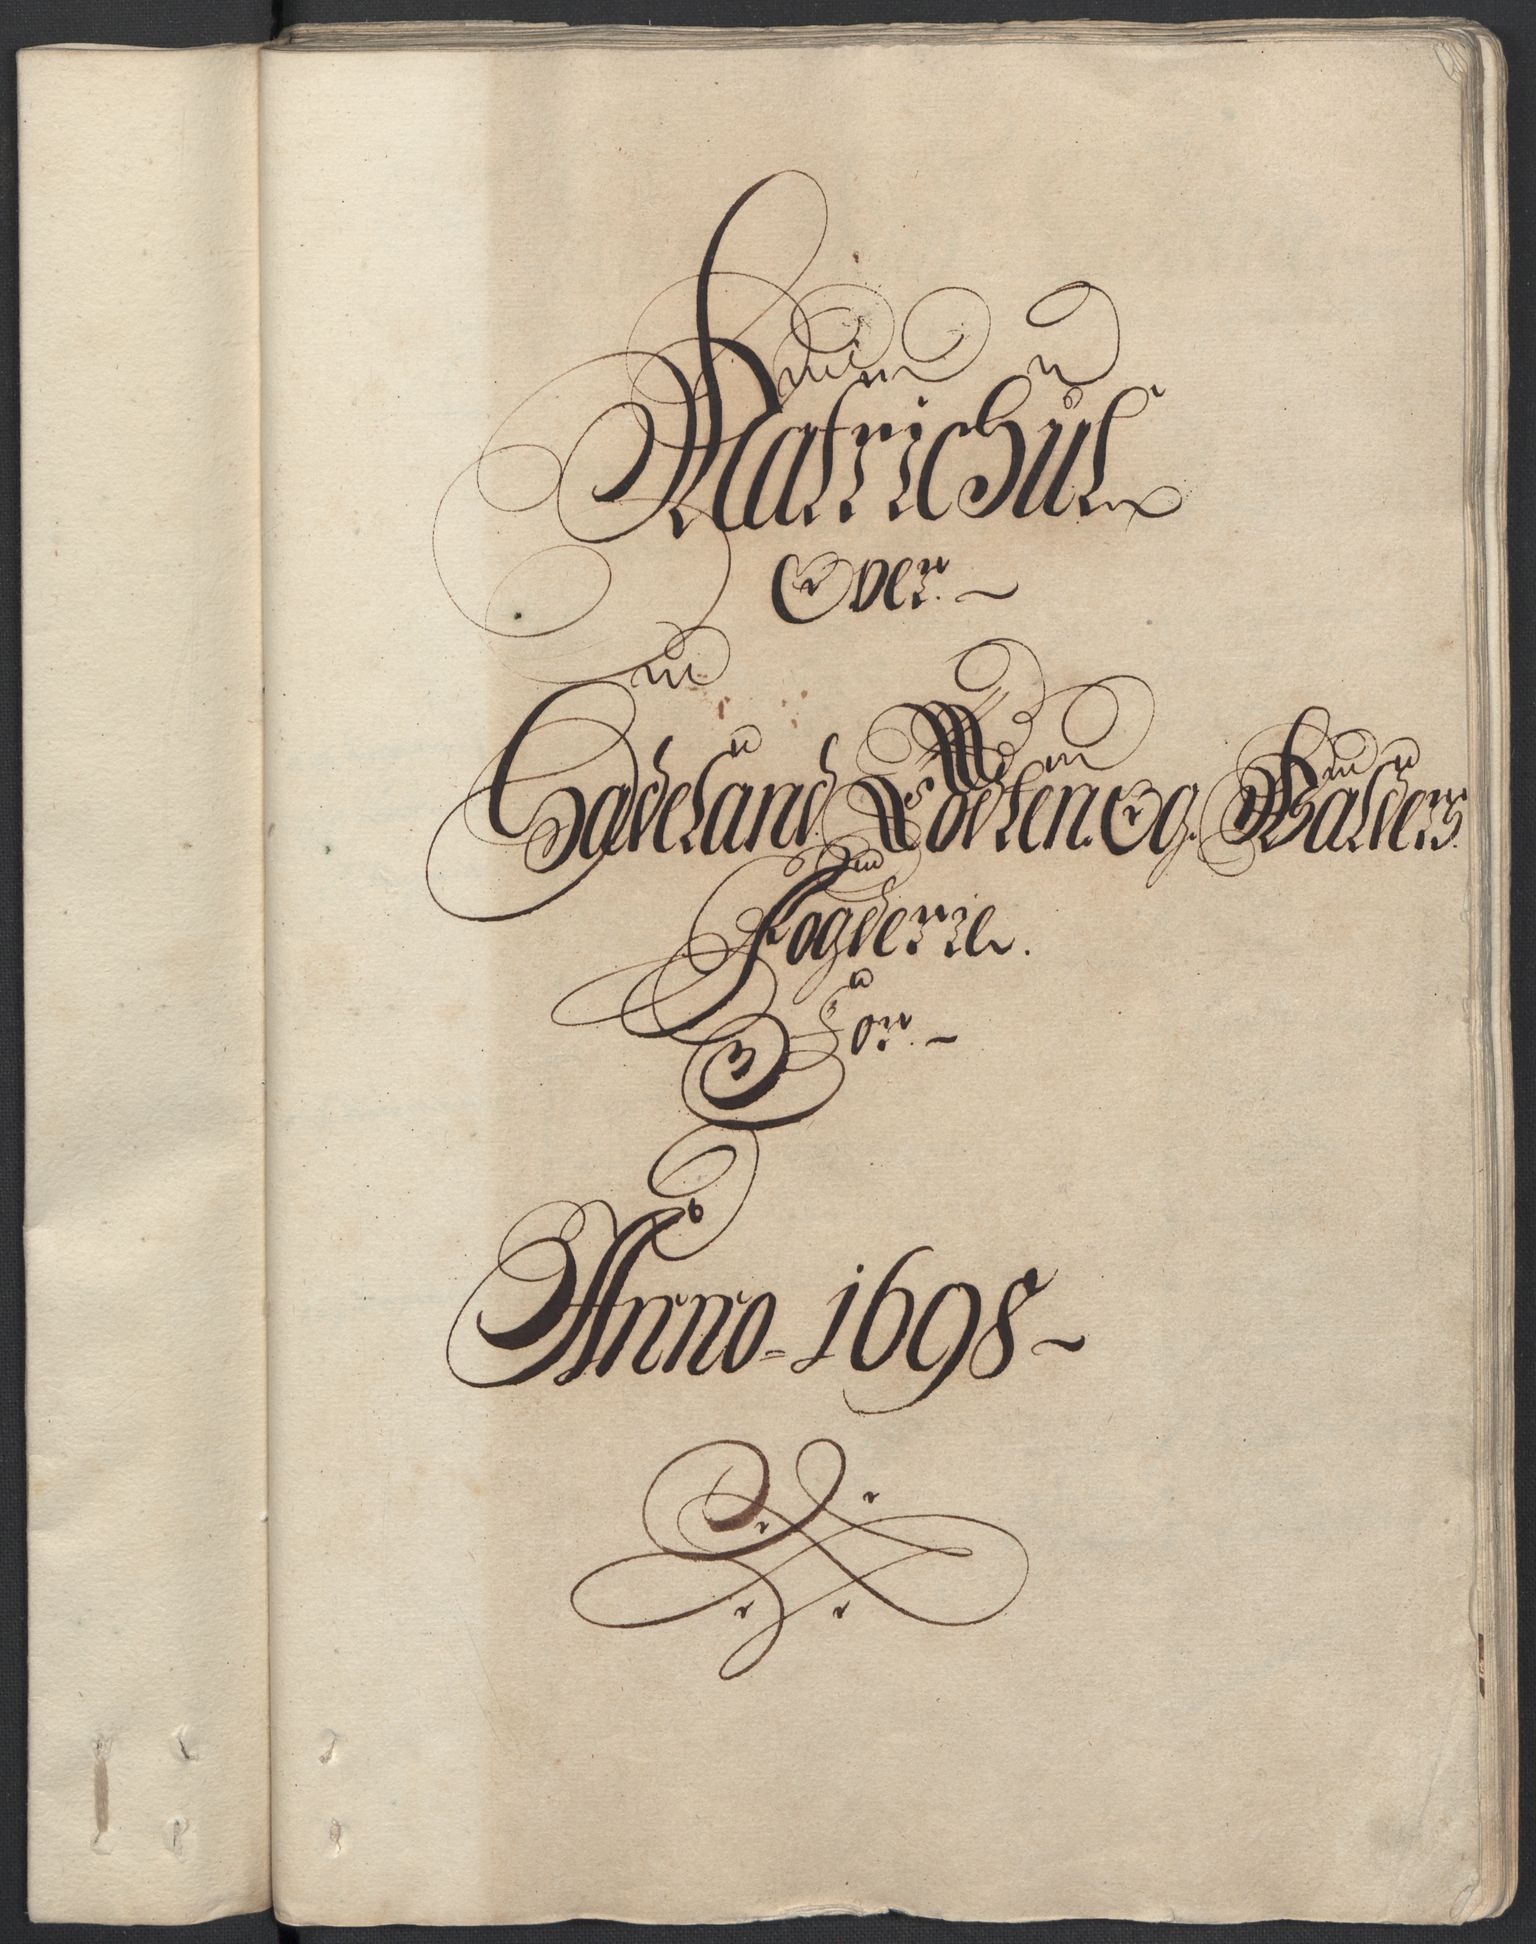 Matrichul
Over
Hadeland Todten Og Valders
Fogderie.
For
Anno 1698